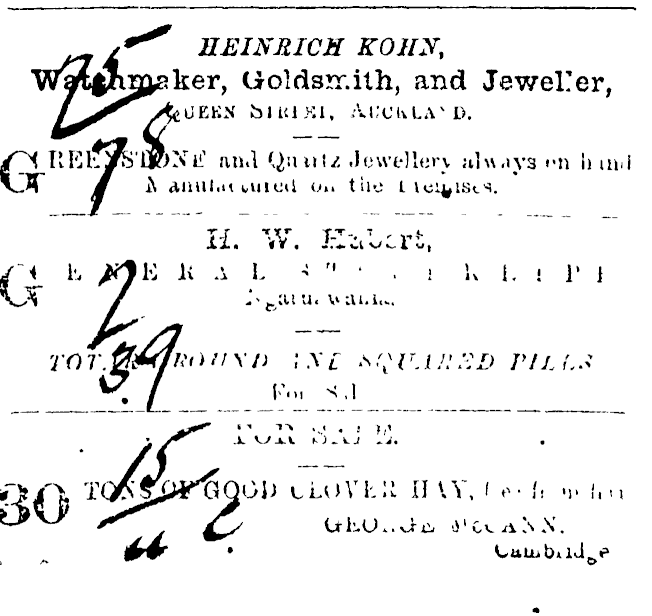 HEINRICH KOHN,
Watchmaker, Goldsmith, and Jeweller,
QUEEN STREET, AUCKLAND.
GREENSTONE and Quartz Jewellery always on hand
Manufactured on the Premises.
H. W. Hubert,
GENERAL STOREKEEPER
Ngaruawahia.
TOTARA ROUND AND SQUARED PILES
For
FOR SALE.
30 TONS OF GOOD CLOVER HAY,
GEORGE McCANN.
Cambridge
25
78
2
39
15